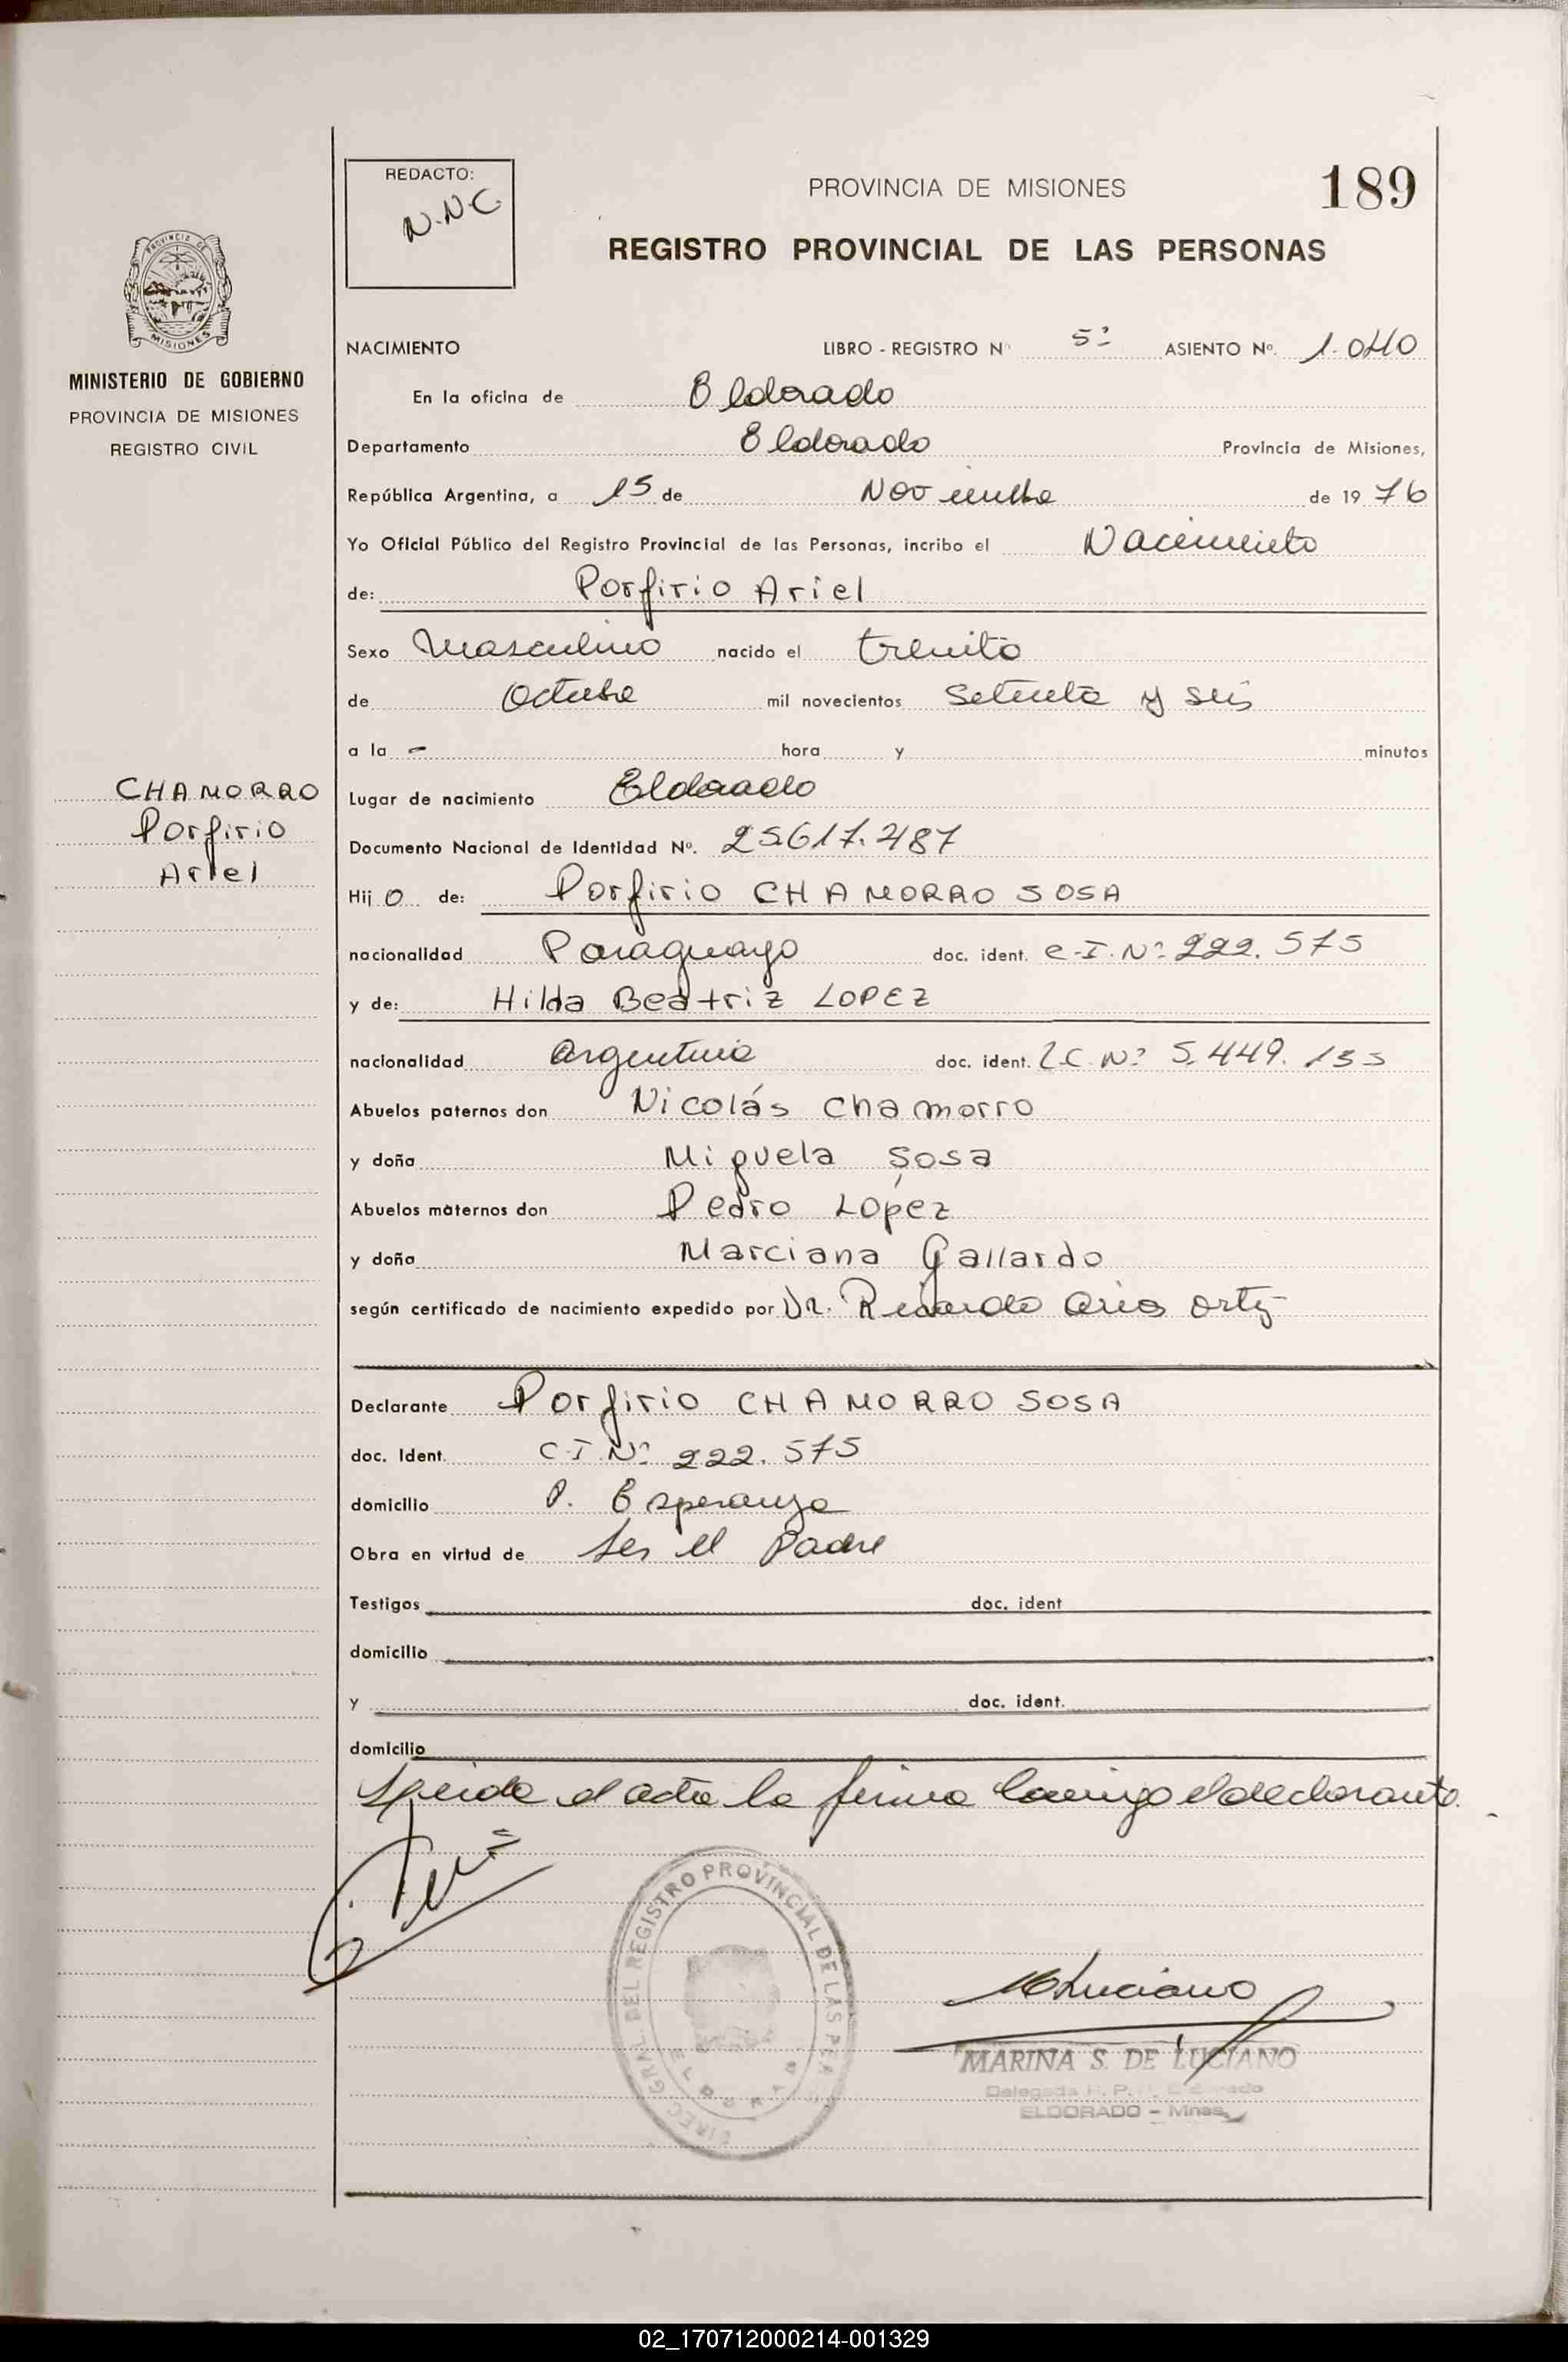 REDACTO:
N.N.C.
PROVINCIA DE MISIONES
189
REGISTRO PROVINCIAL DE LAS PERSONAS
PROVINCIA DE
MISIONES
MINISTERIO DE GOBIERNO
PROVINCIA DE MISIONES
REGISTRO CIVIL
NACIMIENTO LIBRO - REGISTRO Nº 5º ASIENTO Nº. 1.040
En la oficina de Eldorado
Departamento Eldorado Provincia de Misiones,
República Argentina, a 15 de Noviembre de 1976
Yo Oficial Público del Registro Provincial de las Personas, incribo el Nacimiento
de: Porfirio Ariel
Sexo Masculino nacido el treinta
de Octubre mil novecientos Setenta y seis
a la - hora y minutos
CHAMORRO
Porfirio
Ariel
Lugar de nacimiento Eldorado
Documento Nacional de Identidad Nº. 25.617.487
Hijo de: Porfirio CHAMORRO SOSA
nacionalidad Paraguayo doc. ident. C.I. Nº 222.575
y de: Hilda Beatriz LOPEZ
nacionalidad Argentina doc. ident. L.C. Nº 5.449.155
Abuelos paternos don Nicolás Chamorro
y doña Miguela Sosa
Abuelos maternos don Pedro López
y doña Marciana Gallardo
según certificado de nacimiento expedido por Dr. Ricardo Arios Ortiz
Declarante Porfirio CHAMORRO SOSA
doc. Ident. C.I. Nº 222.575
domicilio P. Esperanza
Obra en virtud de ser el Padre
Testigos doc. ident
domicilio
y doc. ident.
domicilio
Leida el acta la firma conmigo el declarante.
DIREC. GRAL. DEL REGISTRO PROVINCIAL DE LAS PER
ELDORADO
MLuciano
MARINA S. DE LUCIANO
Delegada R. P. Eldorado
ELDORADO - Mnes.
02_170712000214-001329